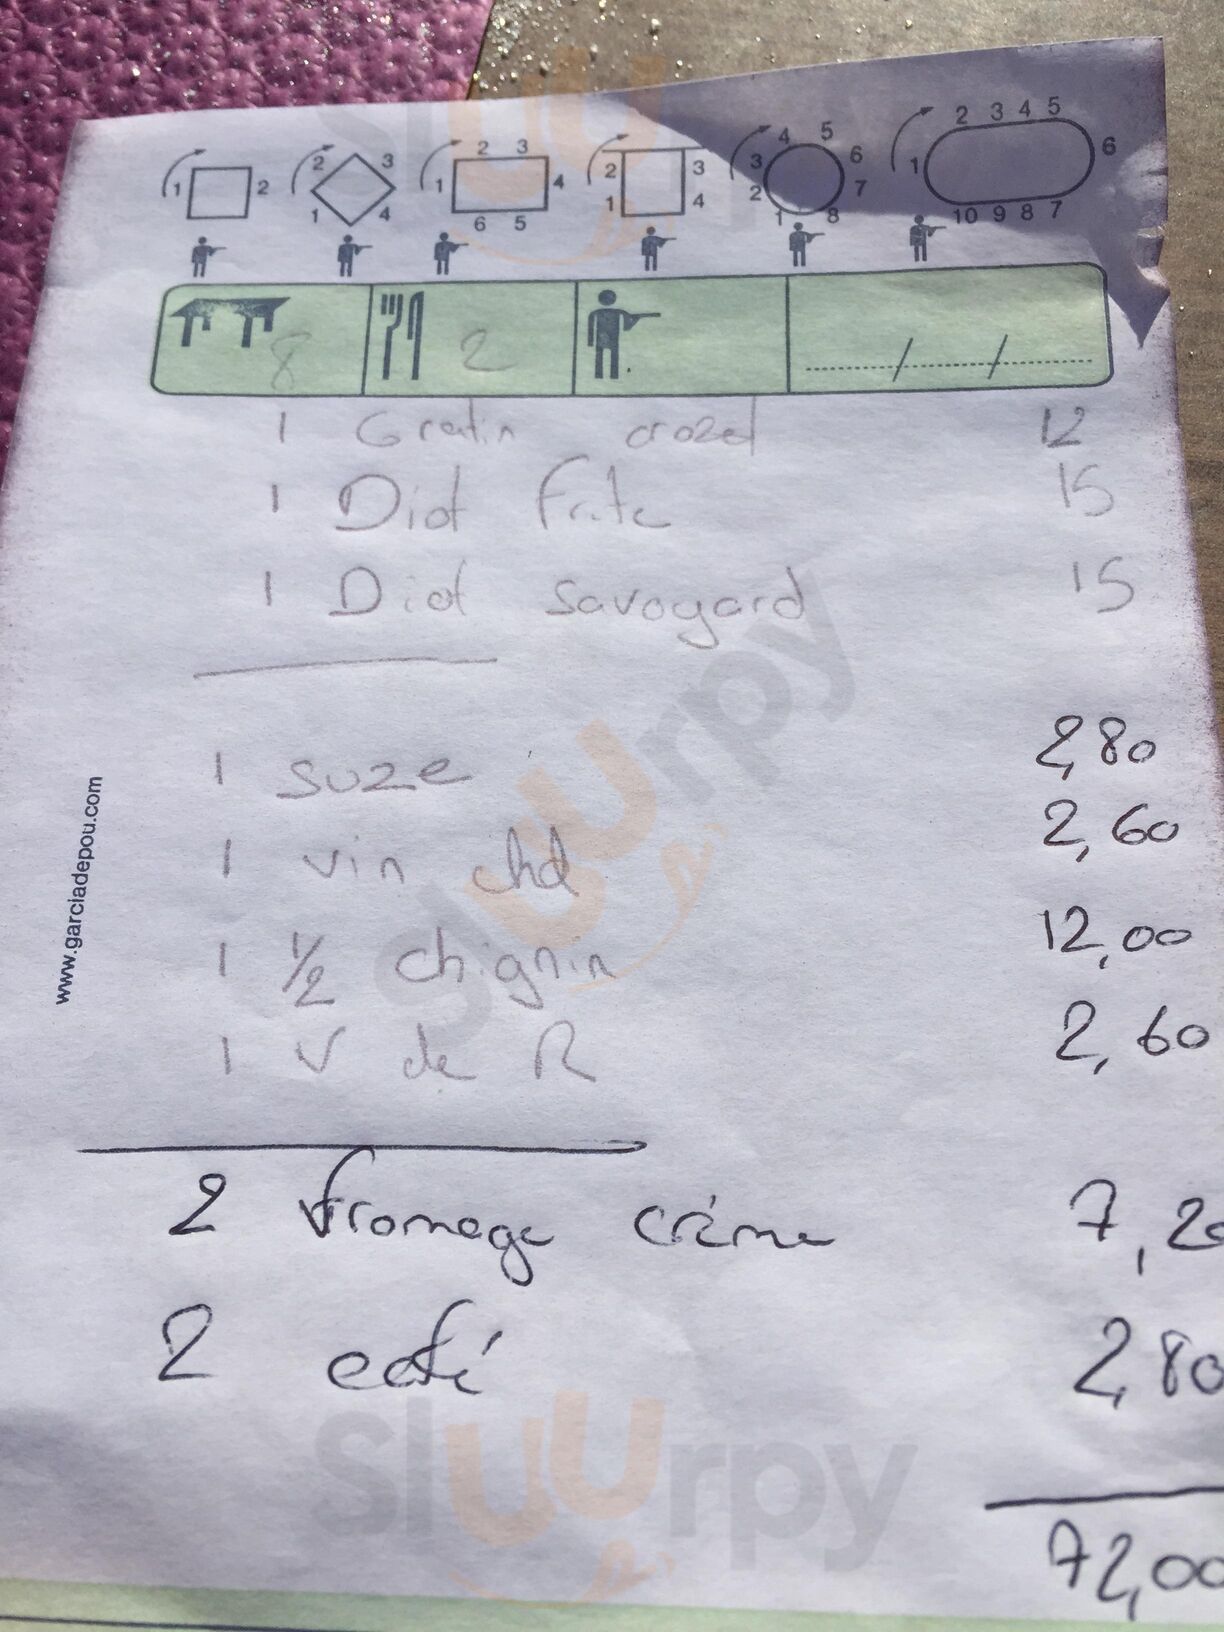 1 2 2 3 1 4 2 3 1 4 6 5 2 3 1 4 3 4 5 6 2 7 1 8 2 3 4 5 1 6 10 9 8 7
8 2 / /
1 Gratin crozet 12
1 Diot Frite 15
1 Diot savoyard 15
1 suze 2,80
1 vin chd 2,60
1 1/2 chignin 12,00
1 V de R 2,60
2 fromage crème 7,20
2 café 2,80
72,00
www.garciadepou.com
Sluurpy
Sluurpy
Sluurpy